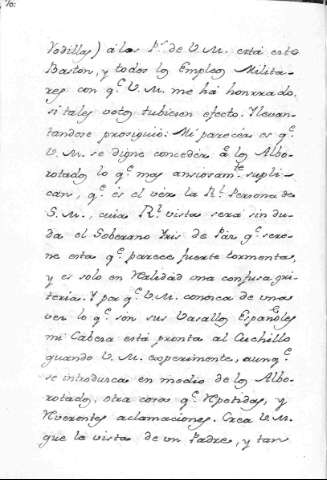 Vodillas) á los P.s de V. M. está este
Baston, y todos los Empleos Milita-
res con q.e V. M. me há honrrado,
si tales votos tubiesen efecto. Y levan-
tandose prosiguió: Mi parecér es q.e
V. M. se digne concedér á los Albo-
rotados lo q.e mas ansiosam.te supli-
can, q.e es el vér la R.l Persona de
S. M., cuia R.l vista será sin du-
da el Soberano Iris de Páz q.e sere-
ne esta q.e parece fuerte tormenta,
y es solo en realidad una confusa gri-
teria. Y por q.e V. M. conozca de una
vez lo q.e son sus Vasallos Españoles
mi Cabeza está pronta al Cuchillo
quando V. M. experimente, aunq.e
se introdusca en medio de los Albo-
rotados, otra cosa q.e repetidas, y
reverentes aclamaciones. Crea V. M.
que la vista de un Padre, y tan